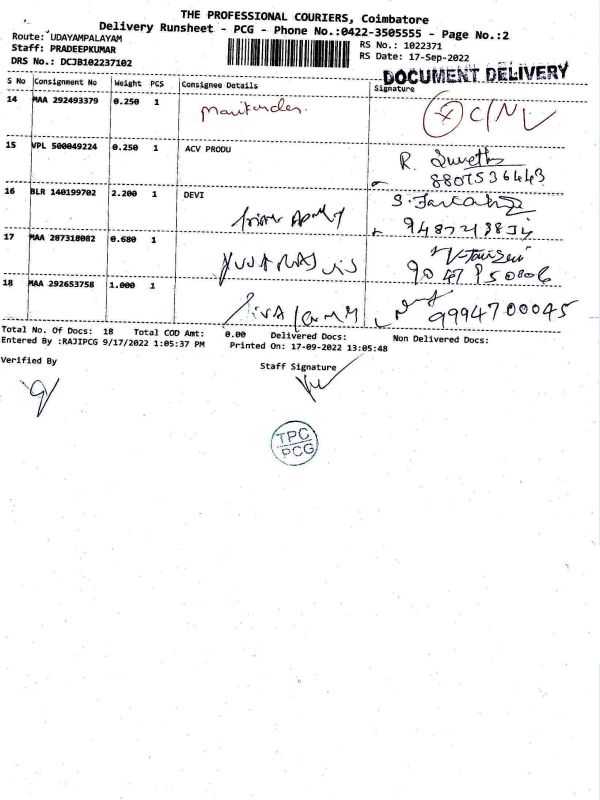 THE PROFESSIONAL COURIERS, Coimbatore
Delivery Runsheet - PCG - Phone No.:0422-3505555 - Page No.:2
Route: UDAYAMPALAYAM
Staff: PRADEEPKUMAR
DRS No.: DCJB102237102
RS No.: 1022371
RS Date: 17-Sep-2022
DOCUMENT DELIVERY
S No Consignment No Weight PGS Consignee Details Signature
14 MAA 292493379 0.250 1
15 VPL 500049224 0.250 1 ACV PRODU
8807536443
16 BLR 140199702 2.200 1 DEVI
17 MAA 287318082 0.680 1
9047850806
18 MAA 292653758 1.000 1
9994700045
Total No. Of Docs: 18 Total COD Amt: 0.00 Delivered Docs: Non Delivered Docs:
Entered By :RAJIPCG 9/17/2022 1:05:37 PM Printed On: 17-09-2022 13:05:48
Verified By
Staff Signature
TPC
PCG